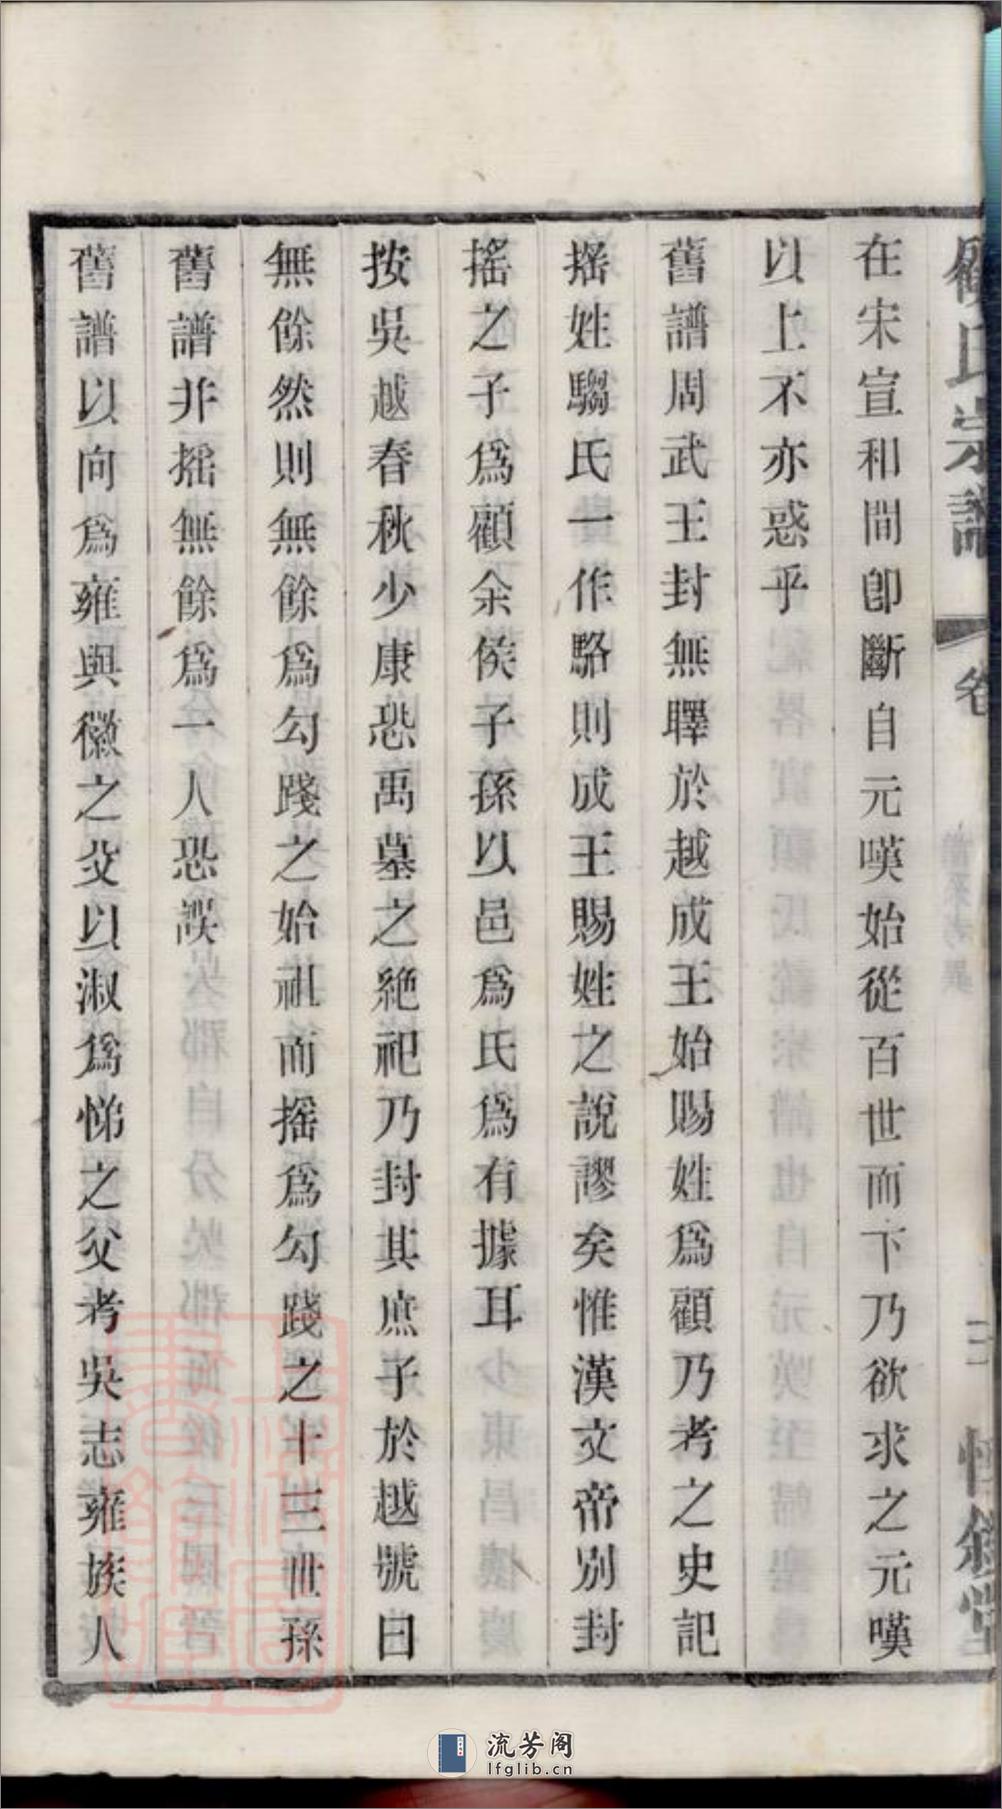 顧氏宗譜
卷
二
在宋宣和間卽斷自元嘆始從百世而下乃欲求之元嘆
以上不亦惑乎
舊譜周武王封無驛於越成王始賜姓爲顧乃考之史記
搖姓騶氏一作駱則成王賜姓之說謬矣惟漢文帝別封
搖之子爲顧余侯子孫以邑爲氏爲有據耳
按吳越春秋少康恐禹墓之絶祀乃封其庶子於越號曰
無餘然則無餘爲勾踐之始祖而搖爲勾踐之十三世孫
舊譜非搖無餘爲一人恐誤
舊譜以向爲雍與徽之父以淑爲悌之父考吳志雍族人
流芳阁
lfglib.cn